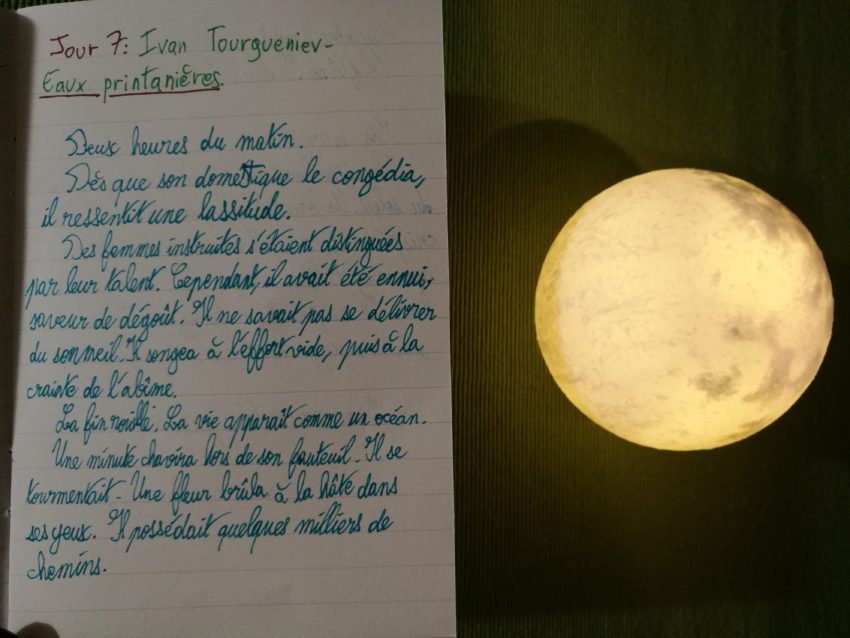 Jour 7: Ivan Tourgueniev-
Eaux printanières.
Deux heures du matin.
Dès que son domestique le congédia,
il ressentit une lassitude.
Des femmes instruites s'étaient distinguées
par leur talent. Cependant, il avait été ennui,
saveur de dégoût. Il ne savait pas se délivrer
du sommeil. Il songea à l'effort vide, puis à la
crainte de l'abîme.
La fin rouillé. La vie apparaît comme un océan.
Une minute chavira hors de son fauteuil. Il se
tourmentait. Une fleur brûla à la hâte dans
ses yeux. Il possédait quelques milliers de
chemins.